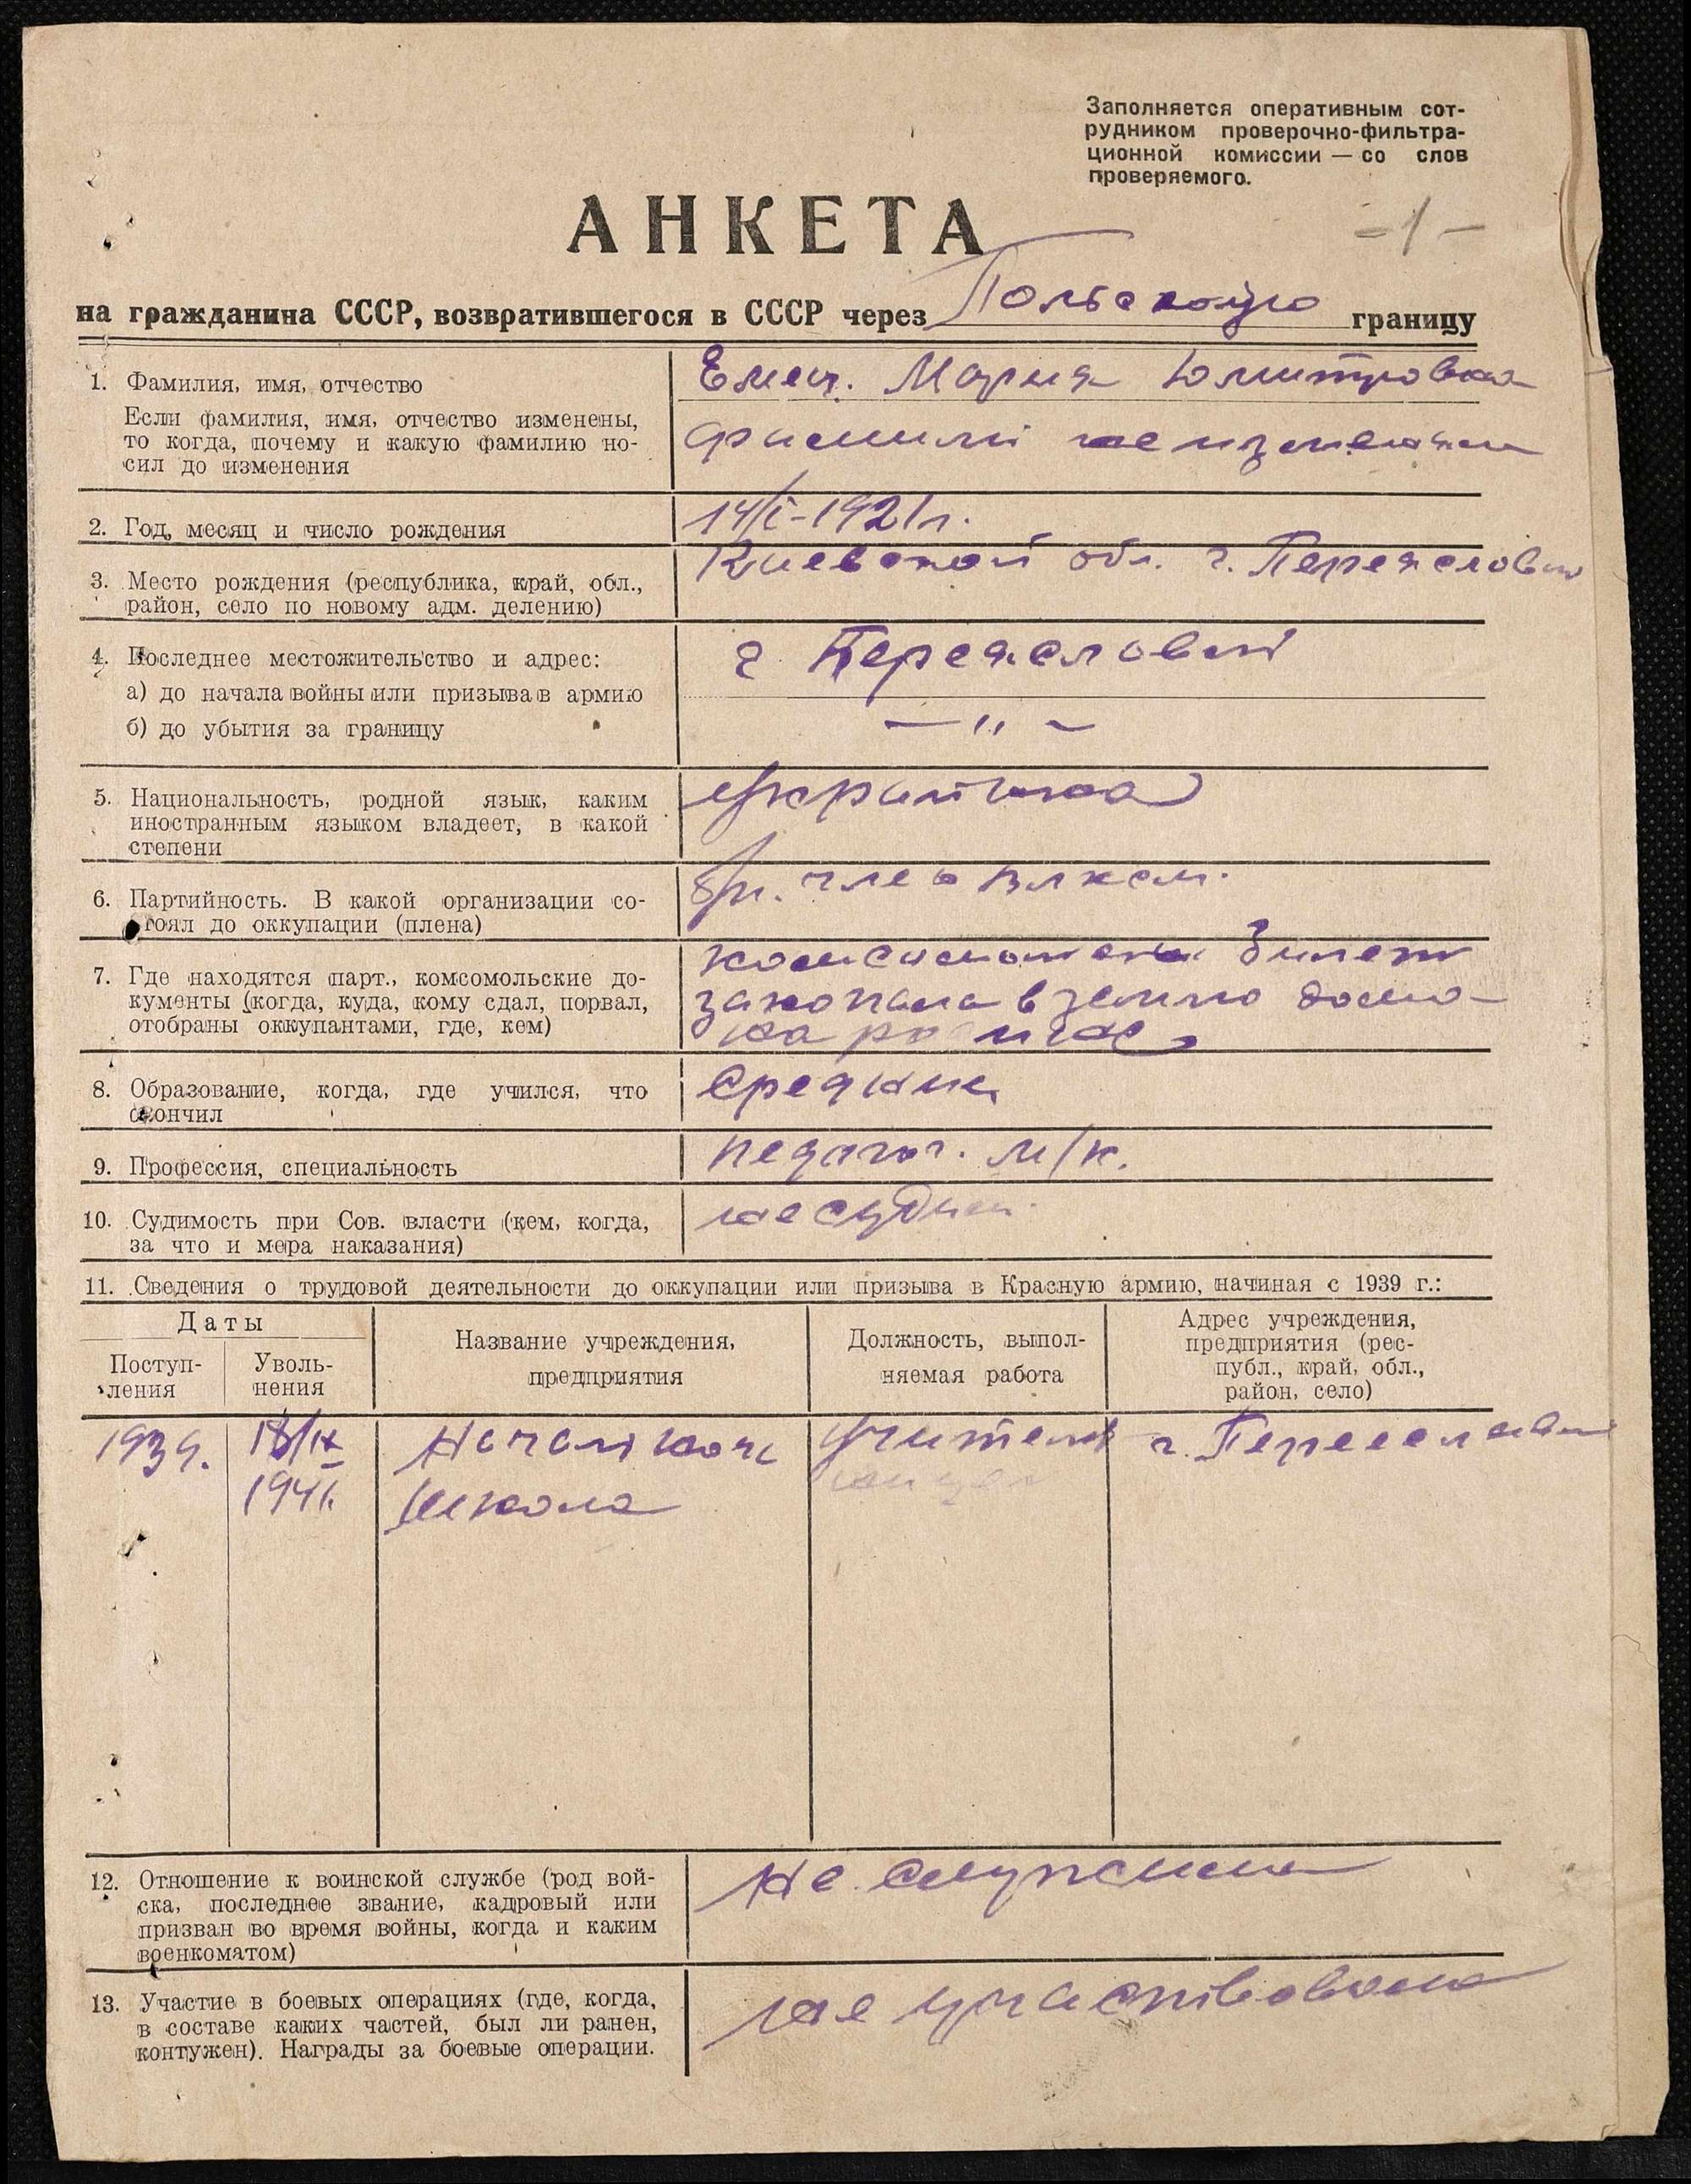 Заполняется оперативным сот-
рудником проверочно-фильтра-
ционной комиссии — со слов
проверяемого.
-1-
АНКЕТА
на гражданина СССР, возвратившегося в СССР через Польскую границу
1. Фамилия, имя, отчество
Емец. Мария Юмитровна
Если фамилия, имя, отчество изменены,
то когда, почему и какую фамилию но-
сил до изменения
фамили не изменяла
2. Год, месяц и число рождения
14/I-1921 г.
3. Место рождения (республика, край, обл.,
район, село по новому адм. делению)
Киевской обл. г. Переяслов
4. Последнее местожительство и адрес:
а) до начала войны или призыва в армию
г Переяслов
б) до убытия за границу
— " —
5. Национальность, родной язык, каким
иностранным языком владеет, в какой
степени
Украинка
6. Партийность. В какой организации со-
стоял до оккупации (плена)
б/п. член влксм.
7. Где находятся парт., комсомольские до-
кументы (когда, куда, кому сдал, порвал,
отобраны оккупантами, где, кем)
билет
закопала в землю дома
на
8. Образование, когда, где учился, что
окончил
Средние
9. Профессия, специальность
педагог. м/к.
10. Судимость при Сов. власти (кем, когда,
за что и мера наказания)
не судим.
11. Сведения о трудовой деятельности до оккупации или призыва в Красную армию, начиная с 1939 г.:
Даты
Поступ-
ления
Уволь-
нения
Название учреждения,
предприятия
Должность, выпол-
няемая работа
Адрес учреждения,
предприятия (рес-
публ., край, обл.,
район, село)
1939. 18/IX Начальная Учитель г. Переяслав
1941. Школа
12. Отношение к воинской службе (род вой-
ска, последнее звание, кадровый или
призван во время войны, когда и каким
военкоматом)
Не служила
13. Участие в боевых операциях (где, когда,
в составе каких частей, был ли ранен,
контужен). Награды за боевые операции.
не участвовала